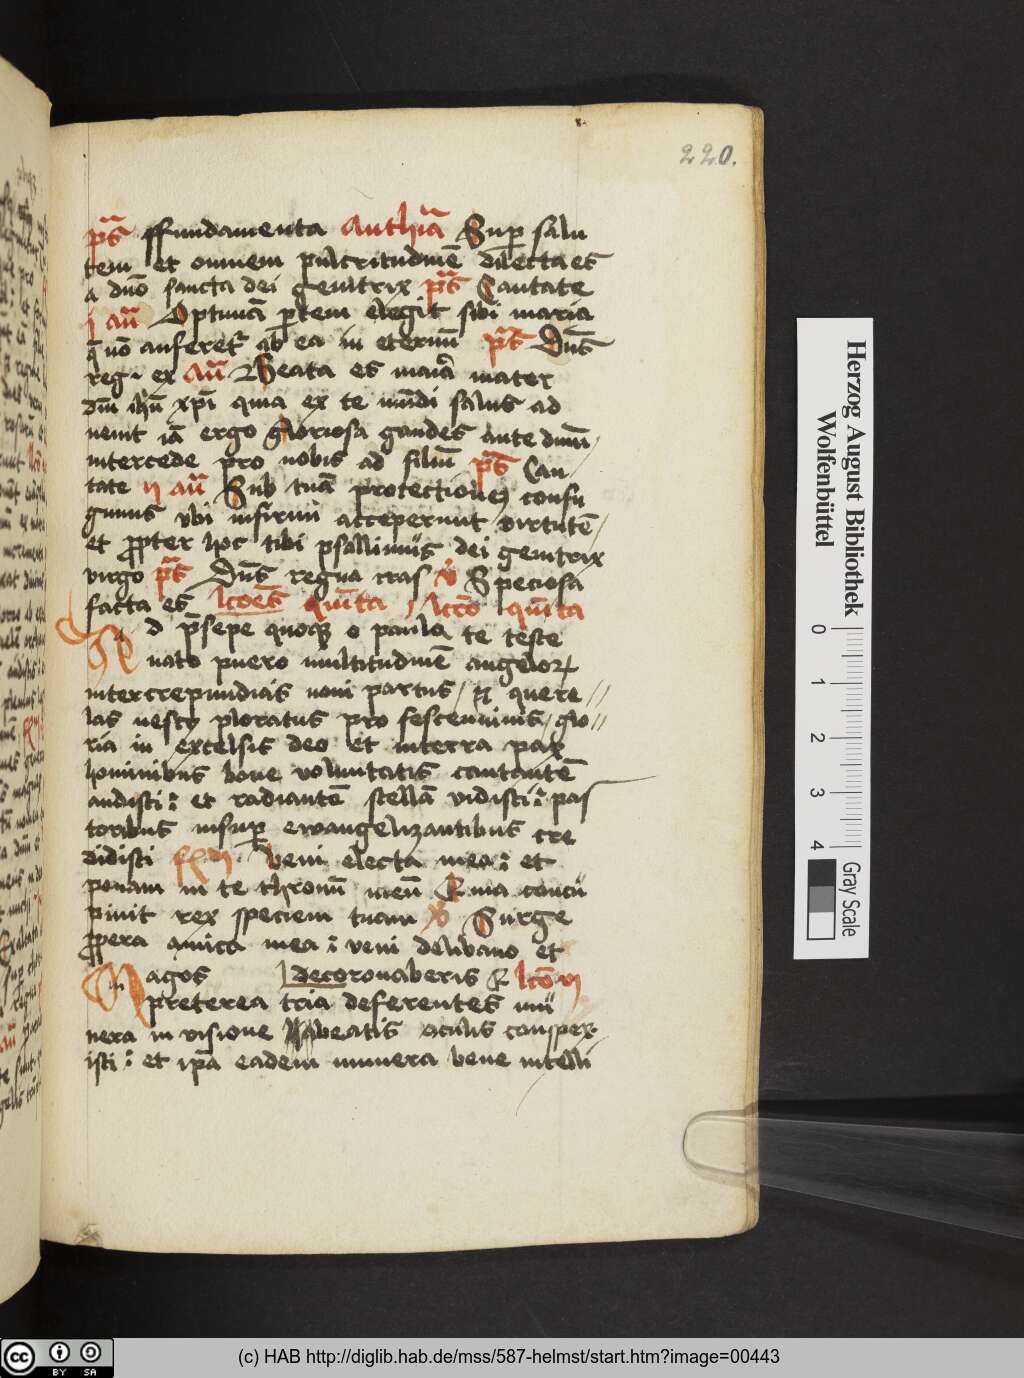 220.
ps̄ ffundamenta Anthiā Sup salu
tem et omnem pulcritudinē dilecta es
a dnō sancta dei genitrix ps̄ Cantate
j an̄ Optimā ptem elegit sibi maria
q̄ nō auferet᷑ ab ea in eternū ps̄ Dn̄s
reg. ex an̄ Beata es maria mater
dni ihū xpī quia ex te mūdi salus ad
uenit iā ergo gloriosa gaudes ante dnm
intercede pro nobis ad filiū ps̄ Can
tate ij an̄ Sub tuā protectionē confu
gimus vbi infirmi acceperunt virtutē
et propter hoc tibi psallimus dei genitrix
virgo ps̄ Dn̄s regna tras v̄ Speciosa
facta es lcōes quīta / lctō quīta
Ad p̄sepe quoq̨ o paula te teste
nato puero multitudinē angelor̨
intercrepundiais noui partus / & quere //
las nescij ploratus pro festeninis / glo //
ria in excelsis deo et in terra pax
hominibus bone voluntatis cantantē
audisti : et radiantē stellā vidisti : pas
toribus insup ewangelizantibus cre
didisti R̄m Veni electa mea : et
ponam in te thronū meū Quia concu
piuit rex speciem tuam v̄ Surge
propera amica mea : veni de libano et
decoronaberis & lctō vj
Magos
preterea tria deferentes mu
nera in visione beatis oculis conspex
isti : et ipa eadem munera bene intelli
Herzog August Bibliothek
Wolfenbüttel
0 1 2 3 4
Gray Scale
cc BY SA
(c) HAB http://diglib.hab.de/mss/587-helmst/start.htm?image=00443